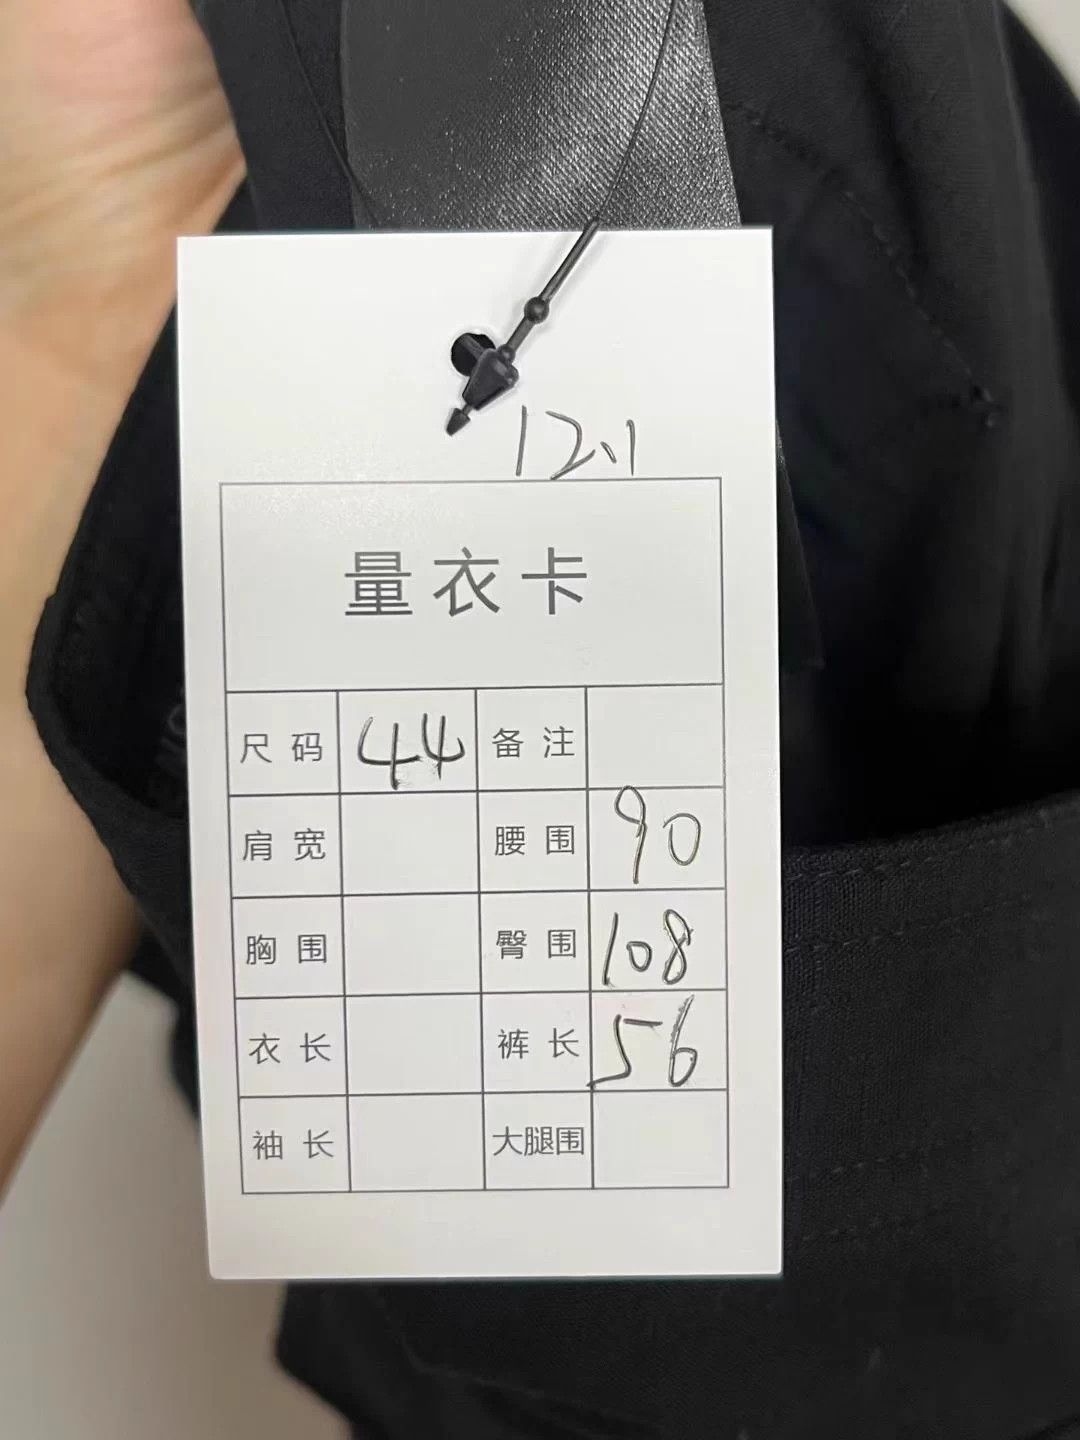 12.1
量衣卡
尺码 44 备注
肩宽 腰围 90
胸围 臀围 108
衣长 裤长 56
袖长 大腿围